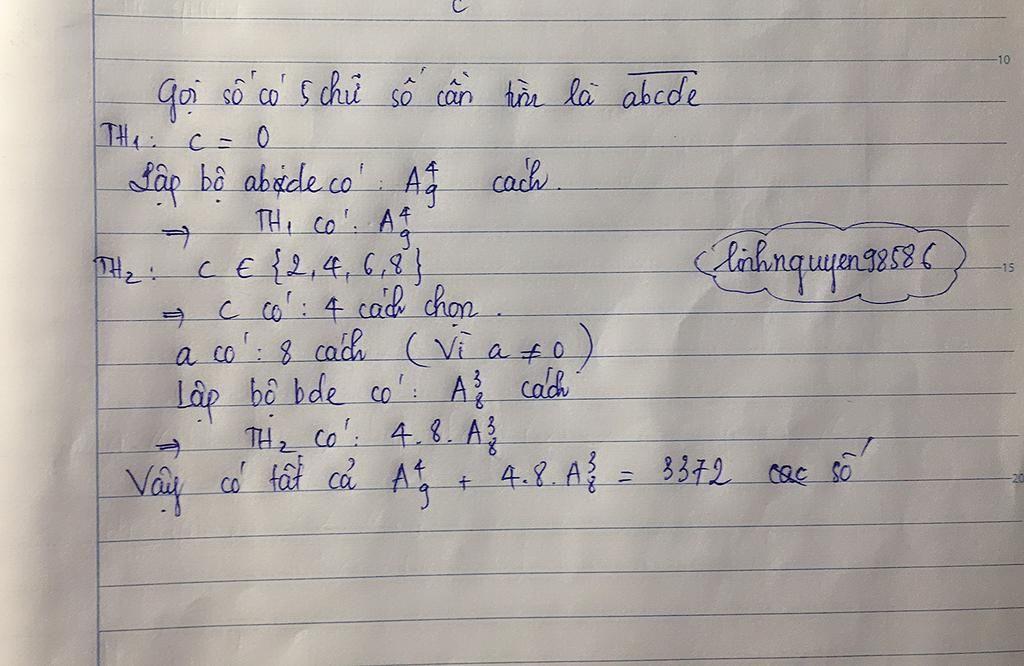 c
10
Gọi số có 5 chữ số cần tìm là abcde
TH1: c = 0
Lập bộ abde có: A⁴₉ cách.
⇒ TH1 có: A⁴₉
TH2: c ∈ {2, 4, 6, 8}
linhnguyen98586
15
⇒ c có: 4 cách chọn.
a có: 8 cách (Vì a ≠ 0)
Lập bộ bde có: A³₈ cách
⇒ TH2 có: 4.8.A³₈
Vậy có tất cả A⁴₉ + 4.8.A³₈ = 3372 các số
20